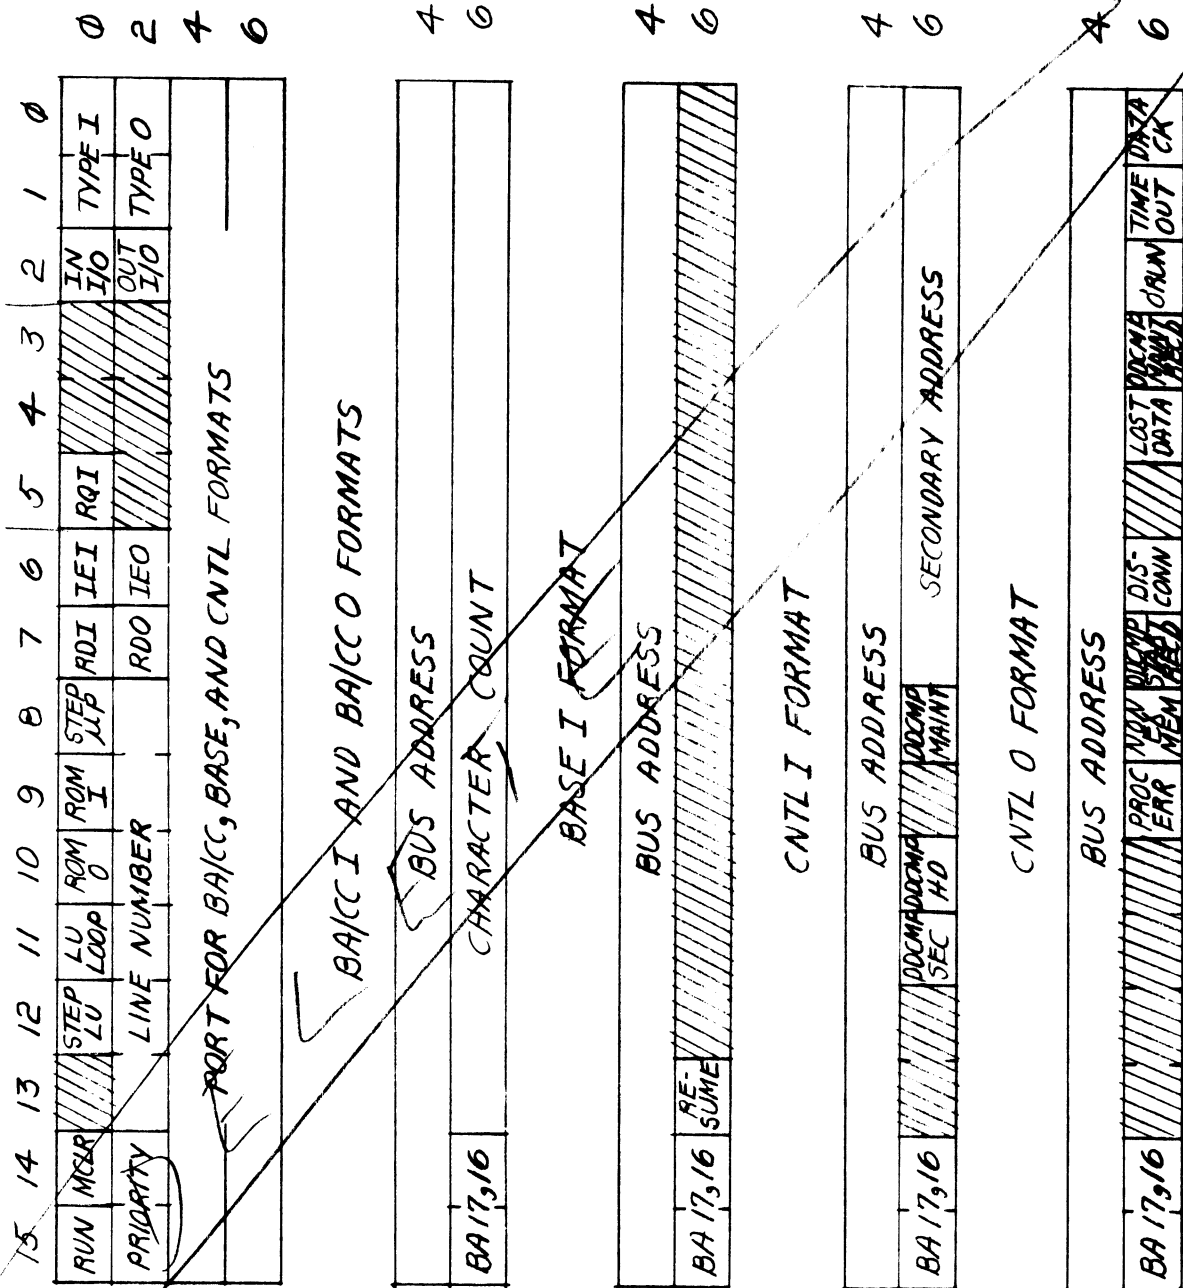 15 14 13 12 11 10 9 8 7 6 5 4 3 2 1 0
RUN MCLR STEP LU LU LOOP ROM O ROM I STEP μP RDI IEI RQI IN I/O TYPE I 0
PRIORITY LINE NUMBER RDO IEO OUT I/O TYPE O 2
4
PORT FOR BA/CC, BASE, AND CNTL FORMATS
6
BA/CC I AND BA/CC O FORMATS
BUS ADDRESS 4
BA 17,16 CHARACTER COUNT 6
BASE I FORMAT
BUS ADDRESS 4
BA 17,16 RE-SUME 6
CNTL I FORMAT
BUS ADDRESS 4
BA 17,16 DDCMP SEC DDCMP HD DDCMP MAINT SECONDARY ADDRESS 6
CNTL O FORMAT
BUS ADDRESS 4
BA 17,16 PROC ERR NON EX MEM DDCMP STRT RECD DIS-CONN LOST DATA DDCMP MAINT RECD ORUN TIME OUT DATA CK 6